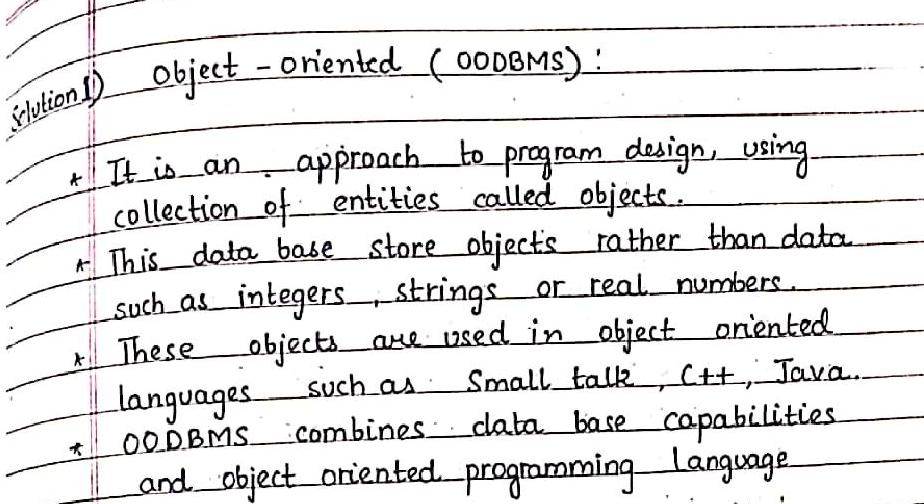 Solution 1) Object - oriented ( OODBMS) :
* It is an approach to program design, using
collection of entities called objects.
* This data base store objects rather than data
such as integers, strings or real numbers.
* These objects are used in object oriented
languages such as Small talk, C++, Java.
* OODBMS combines data base capabilities
and object oriented programming language